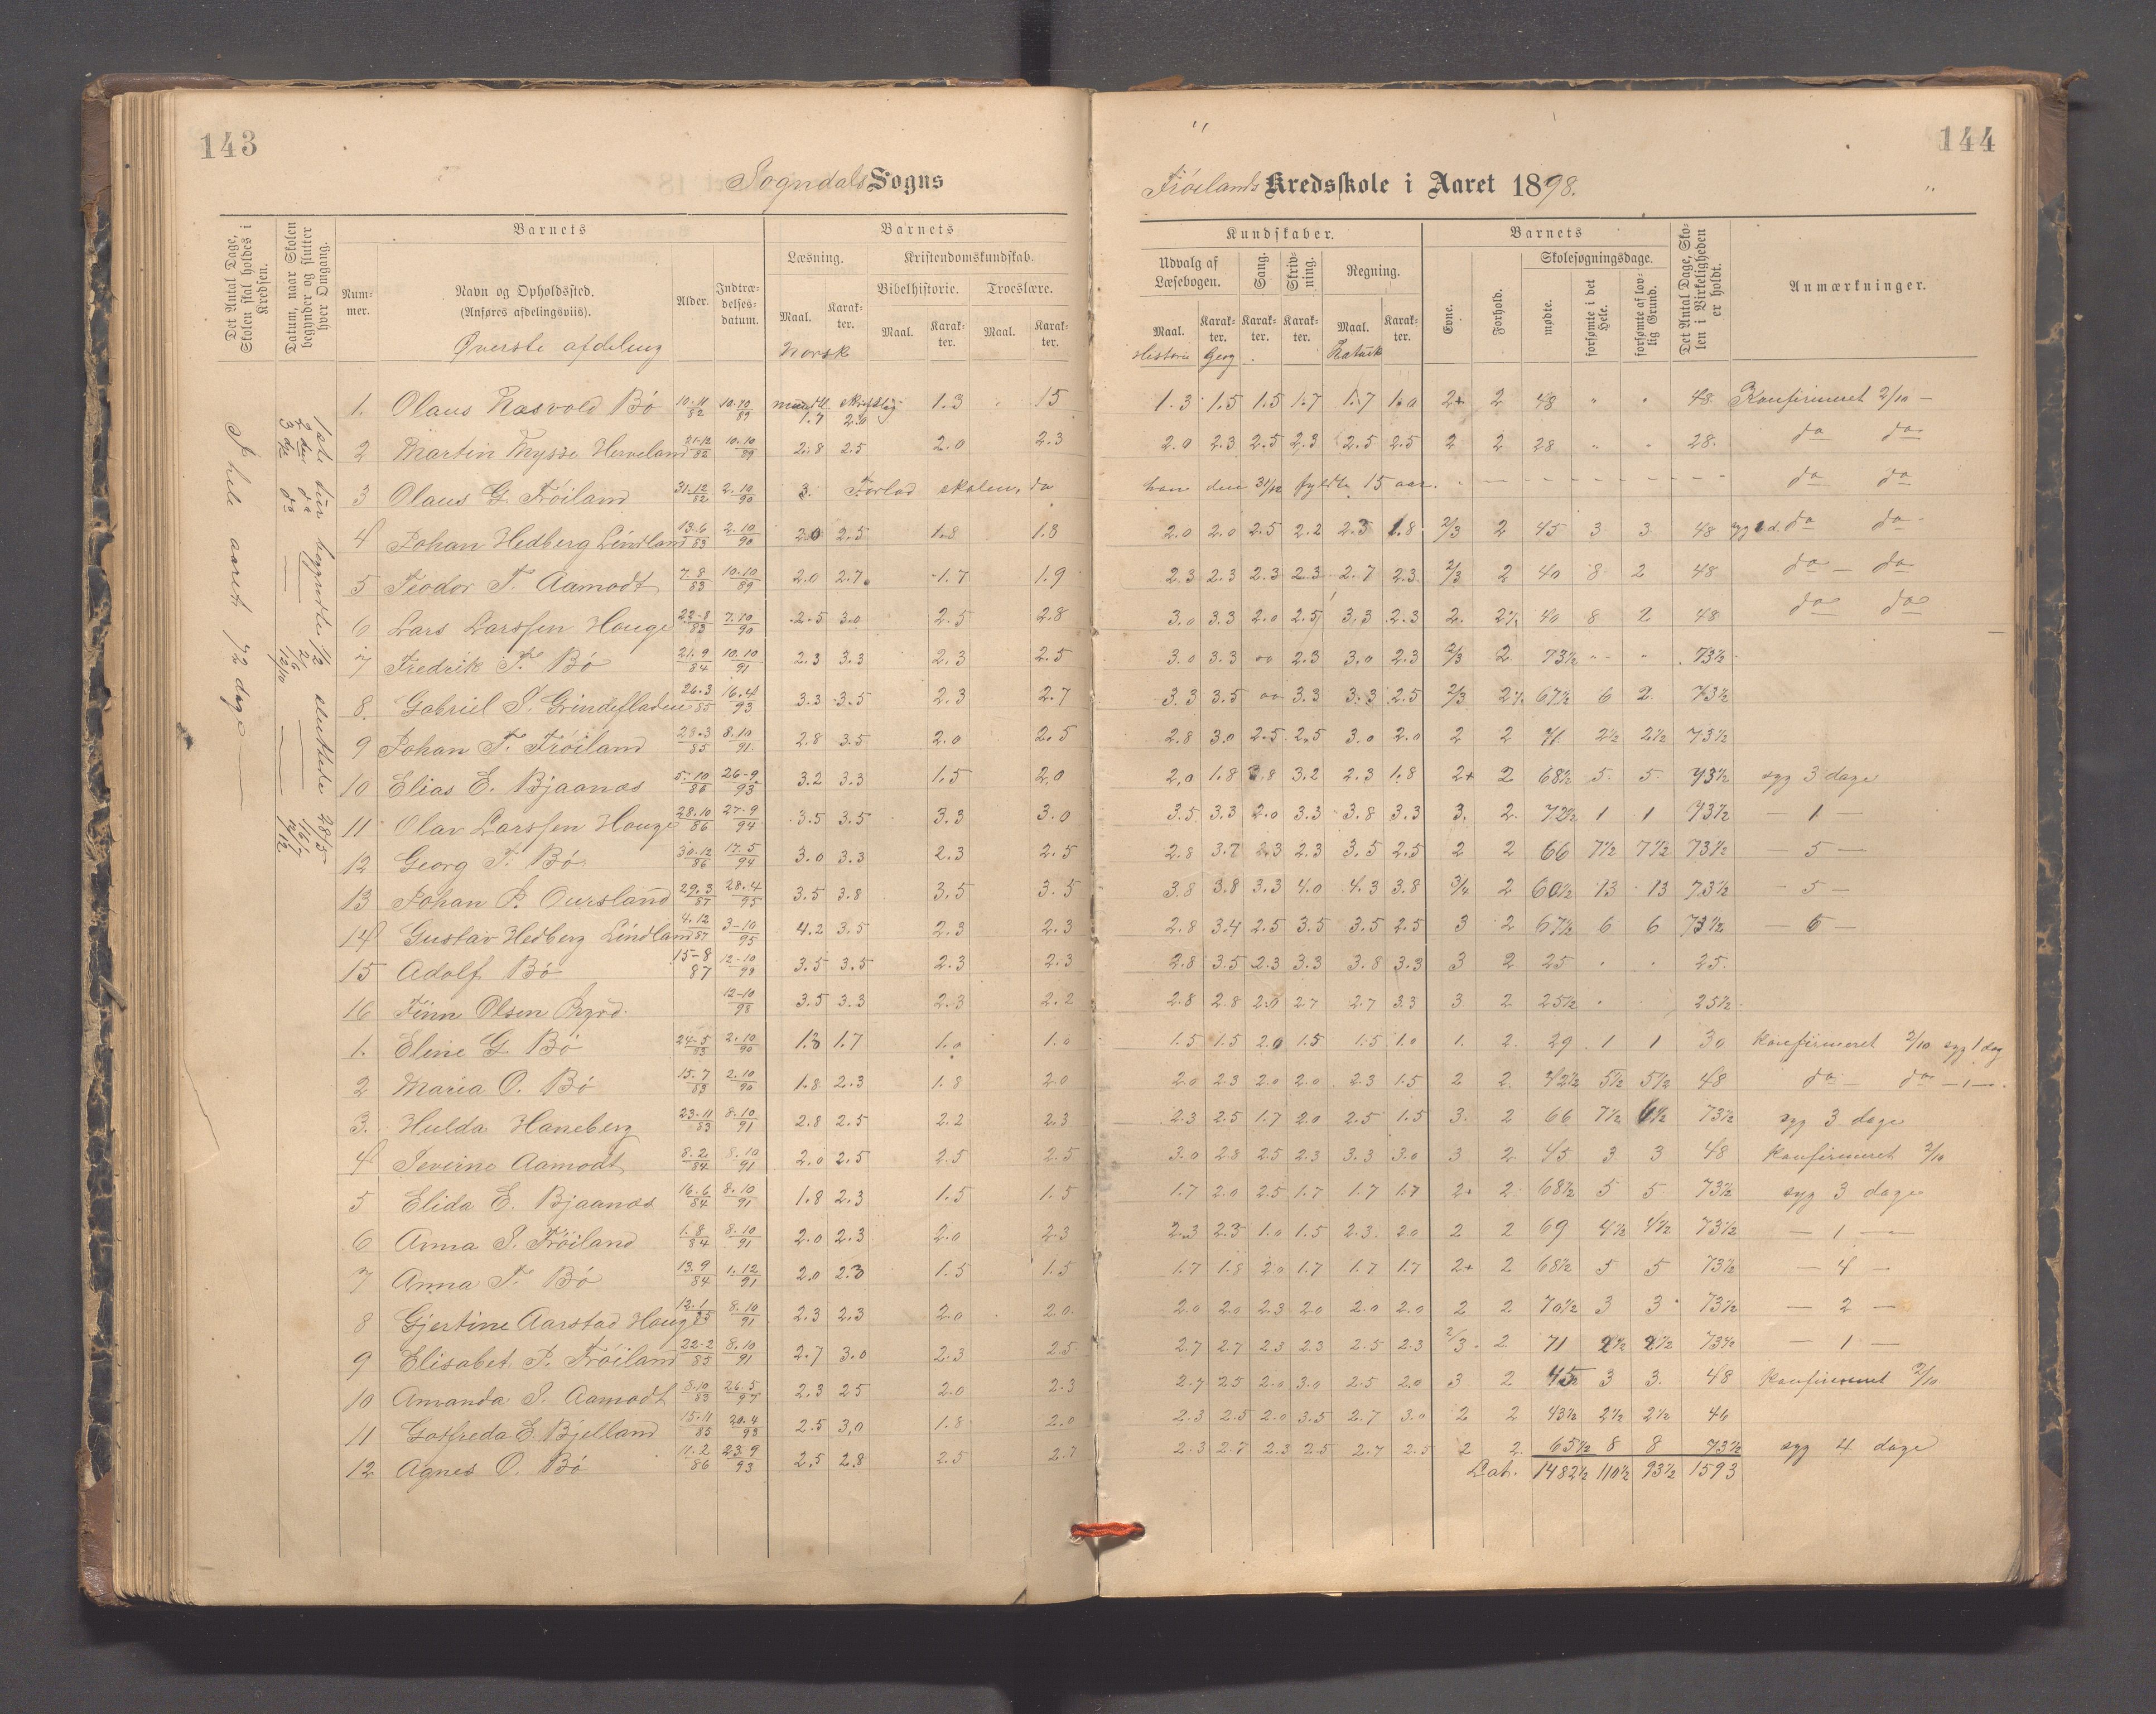 143
Sogndals Sogns
Det Antal Dage, Skolen skal holdes i Kredsen.
Datum, naar Skolen begynder og slutter hver Omgang.
Barnets
Barnets
Num-mer.
Navn og Opholdssted.
(Anføres afdelingsviis).
Alder.
Indtræ-delses-datum.
Læsning.
Kristendomskundskab.
Bibelhistorie.
Troeslære.
Maal. Karak-ter. Maal. Karak-ter. Maal. Karak-ter.
Øverste afdeling
Norsk
I hele aaret 72 dage
1. Olaus Rasvold Bø 10.11/82 10.10/89 mundtl. 1.7 skriftlig 2.0 1.3 15
2 Martin Mysse Herveland 21-12/82 10.10/89 2.8 2.5 2.0 2.3
3 Olaus G. Frøiland 31.12/82 2.10/90 3. Forlod skolen, da
4 Johan Hedberg Lindland 13.6/83 2.10/90 2.0 2.5 1.8 1.8
5 Teodor T. Aamodt 7.8/83 10.10/89 2.0 2.7 1.7 1.9
6 Lars Larssen Hauge 22-8/83 7.10/90 2.5 3.0 2.5 2.8
7 Fredrik T. Bø 21.9/84 10.10/91 2.3 3.3 2.3 2.5
8. Gabriel S. Grindefladen 26.3/85 16.4/93 3.3 3.5 2.3 2.7
9 Johan T. Frøiland 28.3/85 8.10/91 2.8 3.5 2.0 2.5
10 Elias E. Bjaanæs 5.10/86 26-9/93 3.2 3.3 1.5 2.0
11 Olav Larssen Hauge 28.10/86 27-9/94 3.5 3.5 3.3 3.0
12 Georg T. Bø 30.12/86 17.5/94 3.0 3.3 2.3 2.5
13 Johan P. Oursland 29.3/87 28.4/95 3.5 3.8 3.5 3.5
14 Gustav Hedberg Lindland 4.12/87 3-10/95 4.2 3.5 2.3 2.3
15 Adolf Bø 15-8/87 12-10/98 3.5 3.5 2.3 2.3
16 Finn Olsen 12-10/98 3.5 3.3 2.3 2.2
1. Eline G. Bø 24-5/83 2.10/90 1.3 1.7 1.0 1.0
2 Maria O. Bø 15.7/83 2.10/90 1.8 2.3 1.8 2.0
3. Hulda Haneberg 23-11/83 8.10/91 2.8 2.5 2.2 2.3
4 Severine Aamodt 8.2/84 8.10/91 2.0 2.5 2.5 2.5
5 Elida E. Bjaanæs 16.6/84 8.10/91 1.8 2.3 1.5 1.5
6 Anna S. Frøiland 1.8/84 8.10/91 2.0 2.3 2.0 2.3
7 Anna T. Bø 13.9/84 1.12/91 2.0 2.3 1.5 1.5
8 Gjertine Aarstad Hauge 12.1/85 8.10/91 2.3 2.3 2.0 2.0
9 Elisabet P. Frøiland 22-2/85 8.10/91 2.7 3.0 2.3 2.5
10 Amanda S. Aamodt 8.10/83 26.5/95 2.3 25 2.0 2.3
11 Gotfreda E. Bjelland 15.11/85 20.4/93 2.5 3.0 1.8 2.0
12 Agnes O. Bø 11.2/86 23.9/93 2.5 2.8 2.5 2.7
144
Frøilands Kredsskole i Aaret 1898.
Kundskaber.
Barnets
Udvalg af Læsebogen.
Sang.
Skriv-ning.
Regning.
Evne.
Forhold.
Skolesøgningsdage.
mødte.
forsømte i det Hele.
forsømte af lov-lig Grund.
Det Antal Dage, Sko-len i Virkeligheden er holdt.
Anmærkninger.
Maal. Karak-ter. Karak-ter. Karak-ter. Maal. Karak-ter.
Historie Geog
1.3 1.5 1.5 1.7 1.7 1.0 2+ 2 48 " " 48 Konfirmeret 2/10
2.0 2.3 2.5 2.3 2.5 2.5 2 2 28 " " 28. do do
han den 31/12 fyldte 15 aar. do do
2.0 2.0 2.5 2.2 2.3 1.8 2/3 2 45 3 3 48 syg 2 d. do do
2.3 2.3 2.3 2.3 2.7 2.3 2/3 2 40 8 2 48 do do
3.0 3.3 2.0 2.5 3.3 2.3 2. 40 8 2 48 do do
3.0 3.3 oo 2.3 3.0 2.3 2/3 2 73½ " " 73½
3.3 3.5 oo 3.3 3.3 2.5 2/3 67½ 6 2 73½
2.8 3.0 2.5 2.5 3.0 2.0 2 2 71 2½ 2½ 73½
2.0 1.8 3.8 3.2 2.3 1.8 2+ 2 68½ 5 5 73½ syg 3 dage
3.5 3.3 2.0 3.3 3.8 3.3 3. 2. 72½ 1 1 73½ — 1 —
2.8 3.7 2.3 2.3 3.5 2.5 2 2 66 7½ 7½ 73½ — 5 —
3.8 3.8 3.3 4.0 4.3 3.8 3/4 2 60½ 13 13 73½ — 5 —
2.8 3.4 2.5 3.5 3.5 2.5 3 2 67½ 6 6 73½ — 6 —
2.8 3.5 2.3 3.3 3.8 3.3 3 2 25 " " 25.
2.8 2.8 2.0 2.7 2.7 3.3 3 2 25½ 25½
1.5 1.5 2.0 1.5 1.5 1.0 1. 2. 29 1 1 30 Konfirmeret 2/10 syg 1 dag
2.0 2.3 2.0 2.0 2.3 1.5 2 2. 42½ 5½ 5½ 48 do do — 1 —
2.3 2.5 1.7 2.0 2.5 1.5 3. 2 66 7½ 6½ 73½ syg 3 dage
3.0 2.8 2.5 2.3 3.3 3.0 3 2 45 3 3 48 Konfirmeret 2/10
1.7 2.0 2.5 1.7 1.7 1.7 2+ 2 68½ 5 5 73½ syg 3 dage
2.3 2.3 1.0 1.5 2.3 2.0 2 2 69 4½ 4½ 73½ — 1 —
1.7 1.8 2.0 1.7 1.7 1.7 2+ 2 68½ 5 5 73½ — 4 —
2.0 2.0 2.3 2.0 2.0 2.0 2 2 70½ 3 3 73½ — 2 —
2.7 2.7 2.3 2.3 2.5 2.3 2/3 2 71 2½ 2½ 73½ — 1 —
2.7 2.5 2.0 3.0 2.5 2.0 3 2 45 3 3 48 Konfirmeret 2/10
2.3 2.5 2.0 3.5 2.7 3.0 2 2 43½ 2½ 2½ 46
2.3 2.7 2.3 2.5 2.7 2.5 2 2. 65½ 8 8 73½ syg 4 dage
Lat. 1482½ 110½ 93½ 1593